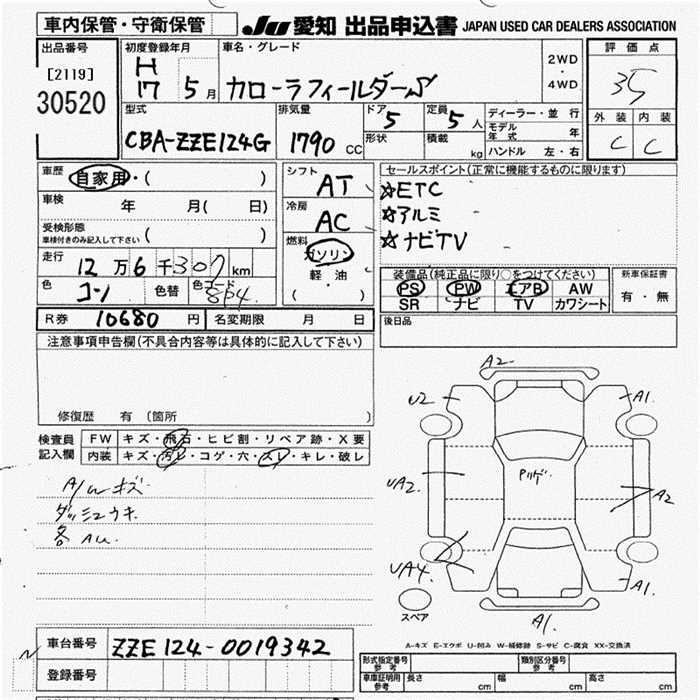 車内保管・守衛保管 JU 愛知 出品申込書 JAPAN USED CAR DEALERS ASSOCIATION
出品番号 初度登録年月 車名・グレード 評価点
[2119] H 2WD
30520 17 5月 カローラフィールダーS ・ 4WD 35
型式 排気量 ドア 5 定員 5人 ディーラー・並行 外装 内装
CBA-ZZE124G 1790 CC 形状 積載 kg モデル年式 年 C C
ハンドル 左・右
車歴 自家用・( ) シフト AT セールスポイント(正常に機能するものに限ります)
車検 年 月( 日) 冷房 AC ☆ETC
☆アルミ
受検形態 ( ) 燃料 ガソリン ☆ナビTV
車検付きのみ記入して下さい
走行 12万6千307km 軽・油 装備品(純正品に限り○をつけてください) 新車保証書
色 コン 色替 色コード 8P4 ( ) PS PW エアB AW 有・無
SR ナビ TV カワシート
R券 10680円 名変期限 月 日 後日品
注意事項申告欄(不具合内容等は具体的に記入して下さい)
修復歴 有 (箇所
検査員 FW キズ・飛石・ヒビ割・リペア跡・X要
記入欄 内装 キズ・汚レ・コゲ・穴・スレ・キレ・破レ
A/wキズ
ダッシュウキ
各AU.
A2
U2 A1.
UA2. A2
UA4. A1.
スペア A1.
A-キズ E-エクボ U-凹み W-補修跡 S-サビ C-腐食 XX-交換済
車台番号 ZZE124-0019342
登録番号
型式指定番号 参考 類別区分番号 参考
車庫証明用 参考 長さ cm 幅 cm 高さ cm